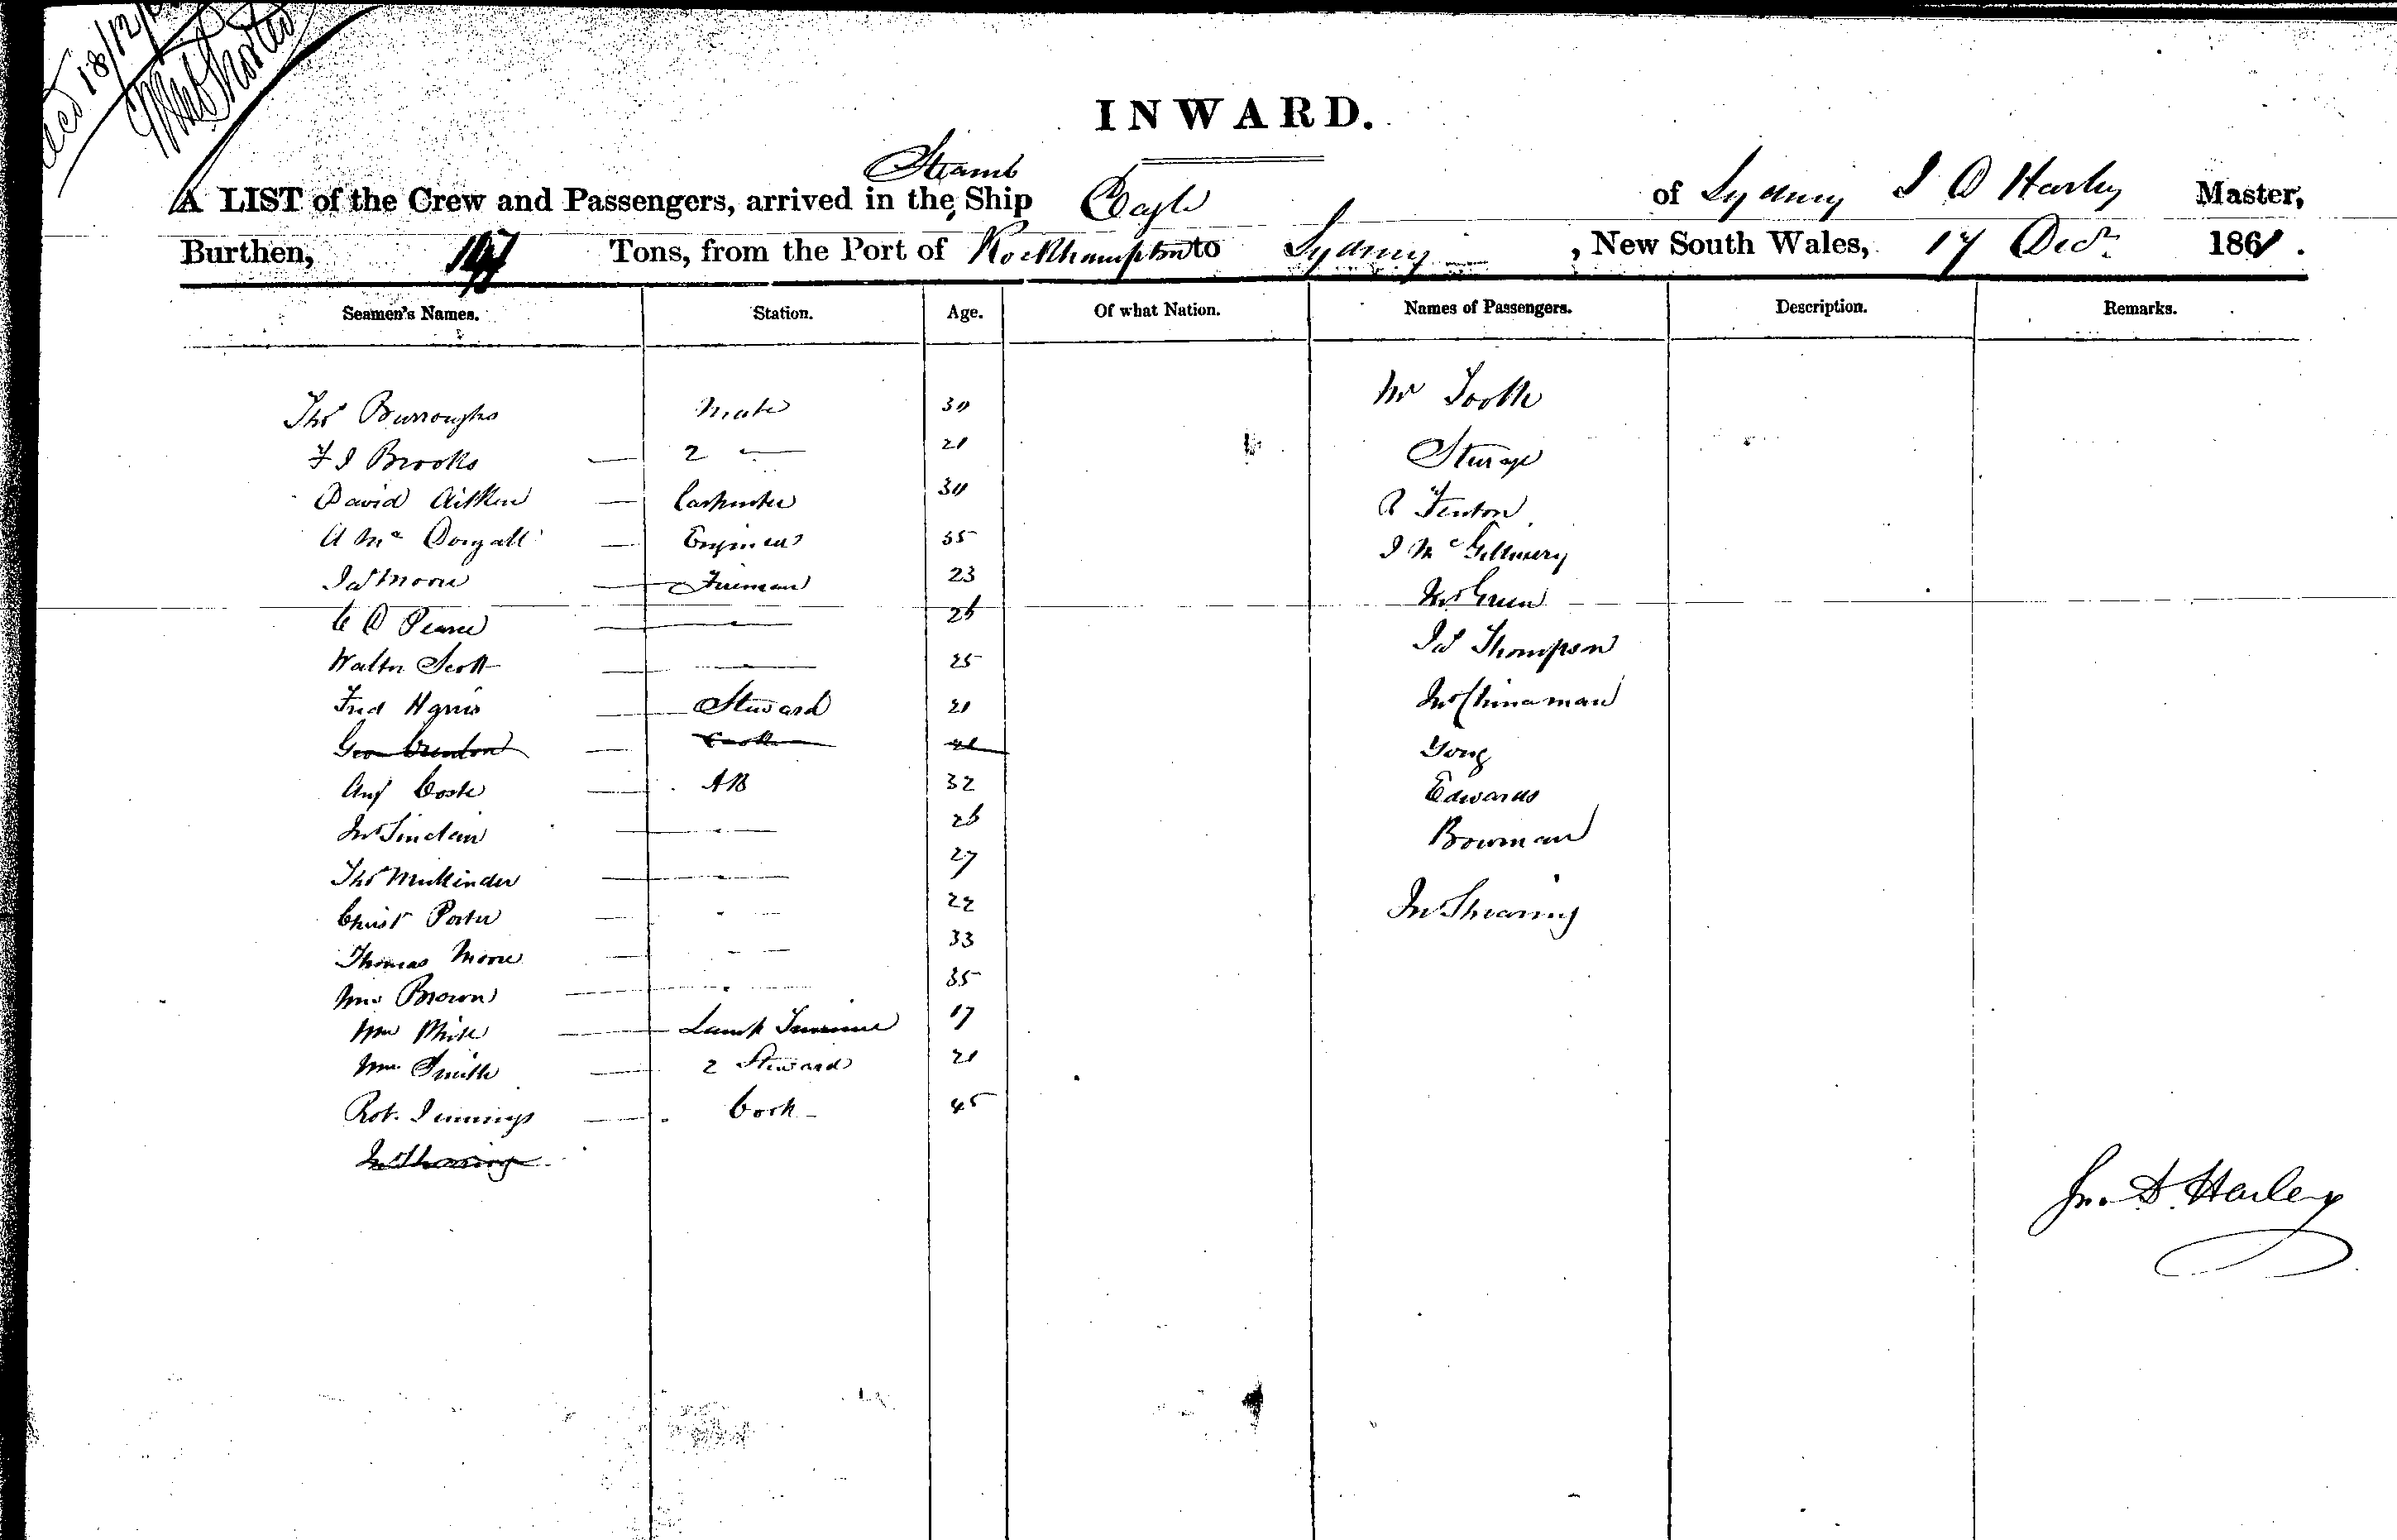 18/12/
INWARD.
Steam
A LIST of the Crew and Passengers, arrived in the Ship Eagle of Sydney J D Harley Master,
Burthen, 147 Tons, from the Port of Rockhampton to Sydney, New South Wales, 17 Decr. 1861.
Seamen's Names. Station. Age. Of what Nation. Names of Passengers. Description. Remarks.
Thos Burroughs Mate 30 Mr Tooth
F J Brooks — 2 — 21
David Aitken — Carpenter 30 R Fenton
A Mc Dougall — Engineer 35
Jas Moore — Fireman 23 Green
C D Pearce — — 26 Jas Thompson
Walter Scott — — 25 Chinaman
Fred Harris — Steward 21 Yong
Geo — Cook Edwards
Aug — AB 32 Bowman
Jno Sinclair — — 26
Thos Mullinder — — 27 Jno Shearing
Christ Porter — — 22
Thomas Moore — — 33
Wm Brown — — 35
Wm White — Lamp Trimmer 17
Wm Smith — 2 Steward 21
Rob. Jennings — Cook 45
Jno Shearing
Jn. D. Harley